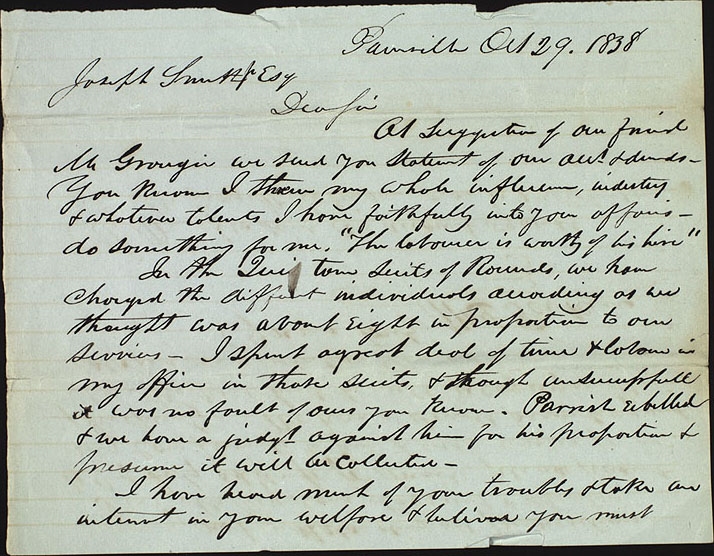 Painsville Oct 29. 1838
Joseph Smith Jr Esq
Dear Sir
At Suggestion of our friend
Mr Granger we send you Statement of our acct & demds—
You know I threw my whole influence, industry
& whatever talents I have faithfully into your affairs—
do something for me. "The labourer is worthy of his hire"
In the Qui tam Suits of Rounds, we have
charged the different individuals according as we
thought was about right in proportion to our
Services— I spent a great deal of time & labour in
my office in those suits, & though unsuccessfull
it was no fault of ours you know. Parrish rebelled
& we have a judgt against him for his proportion &
presume it will be collected—
I have heard much of your troubles & take an
interest in your welfare & believe you must